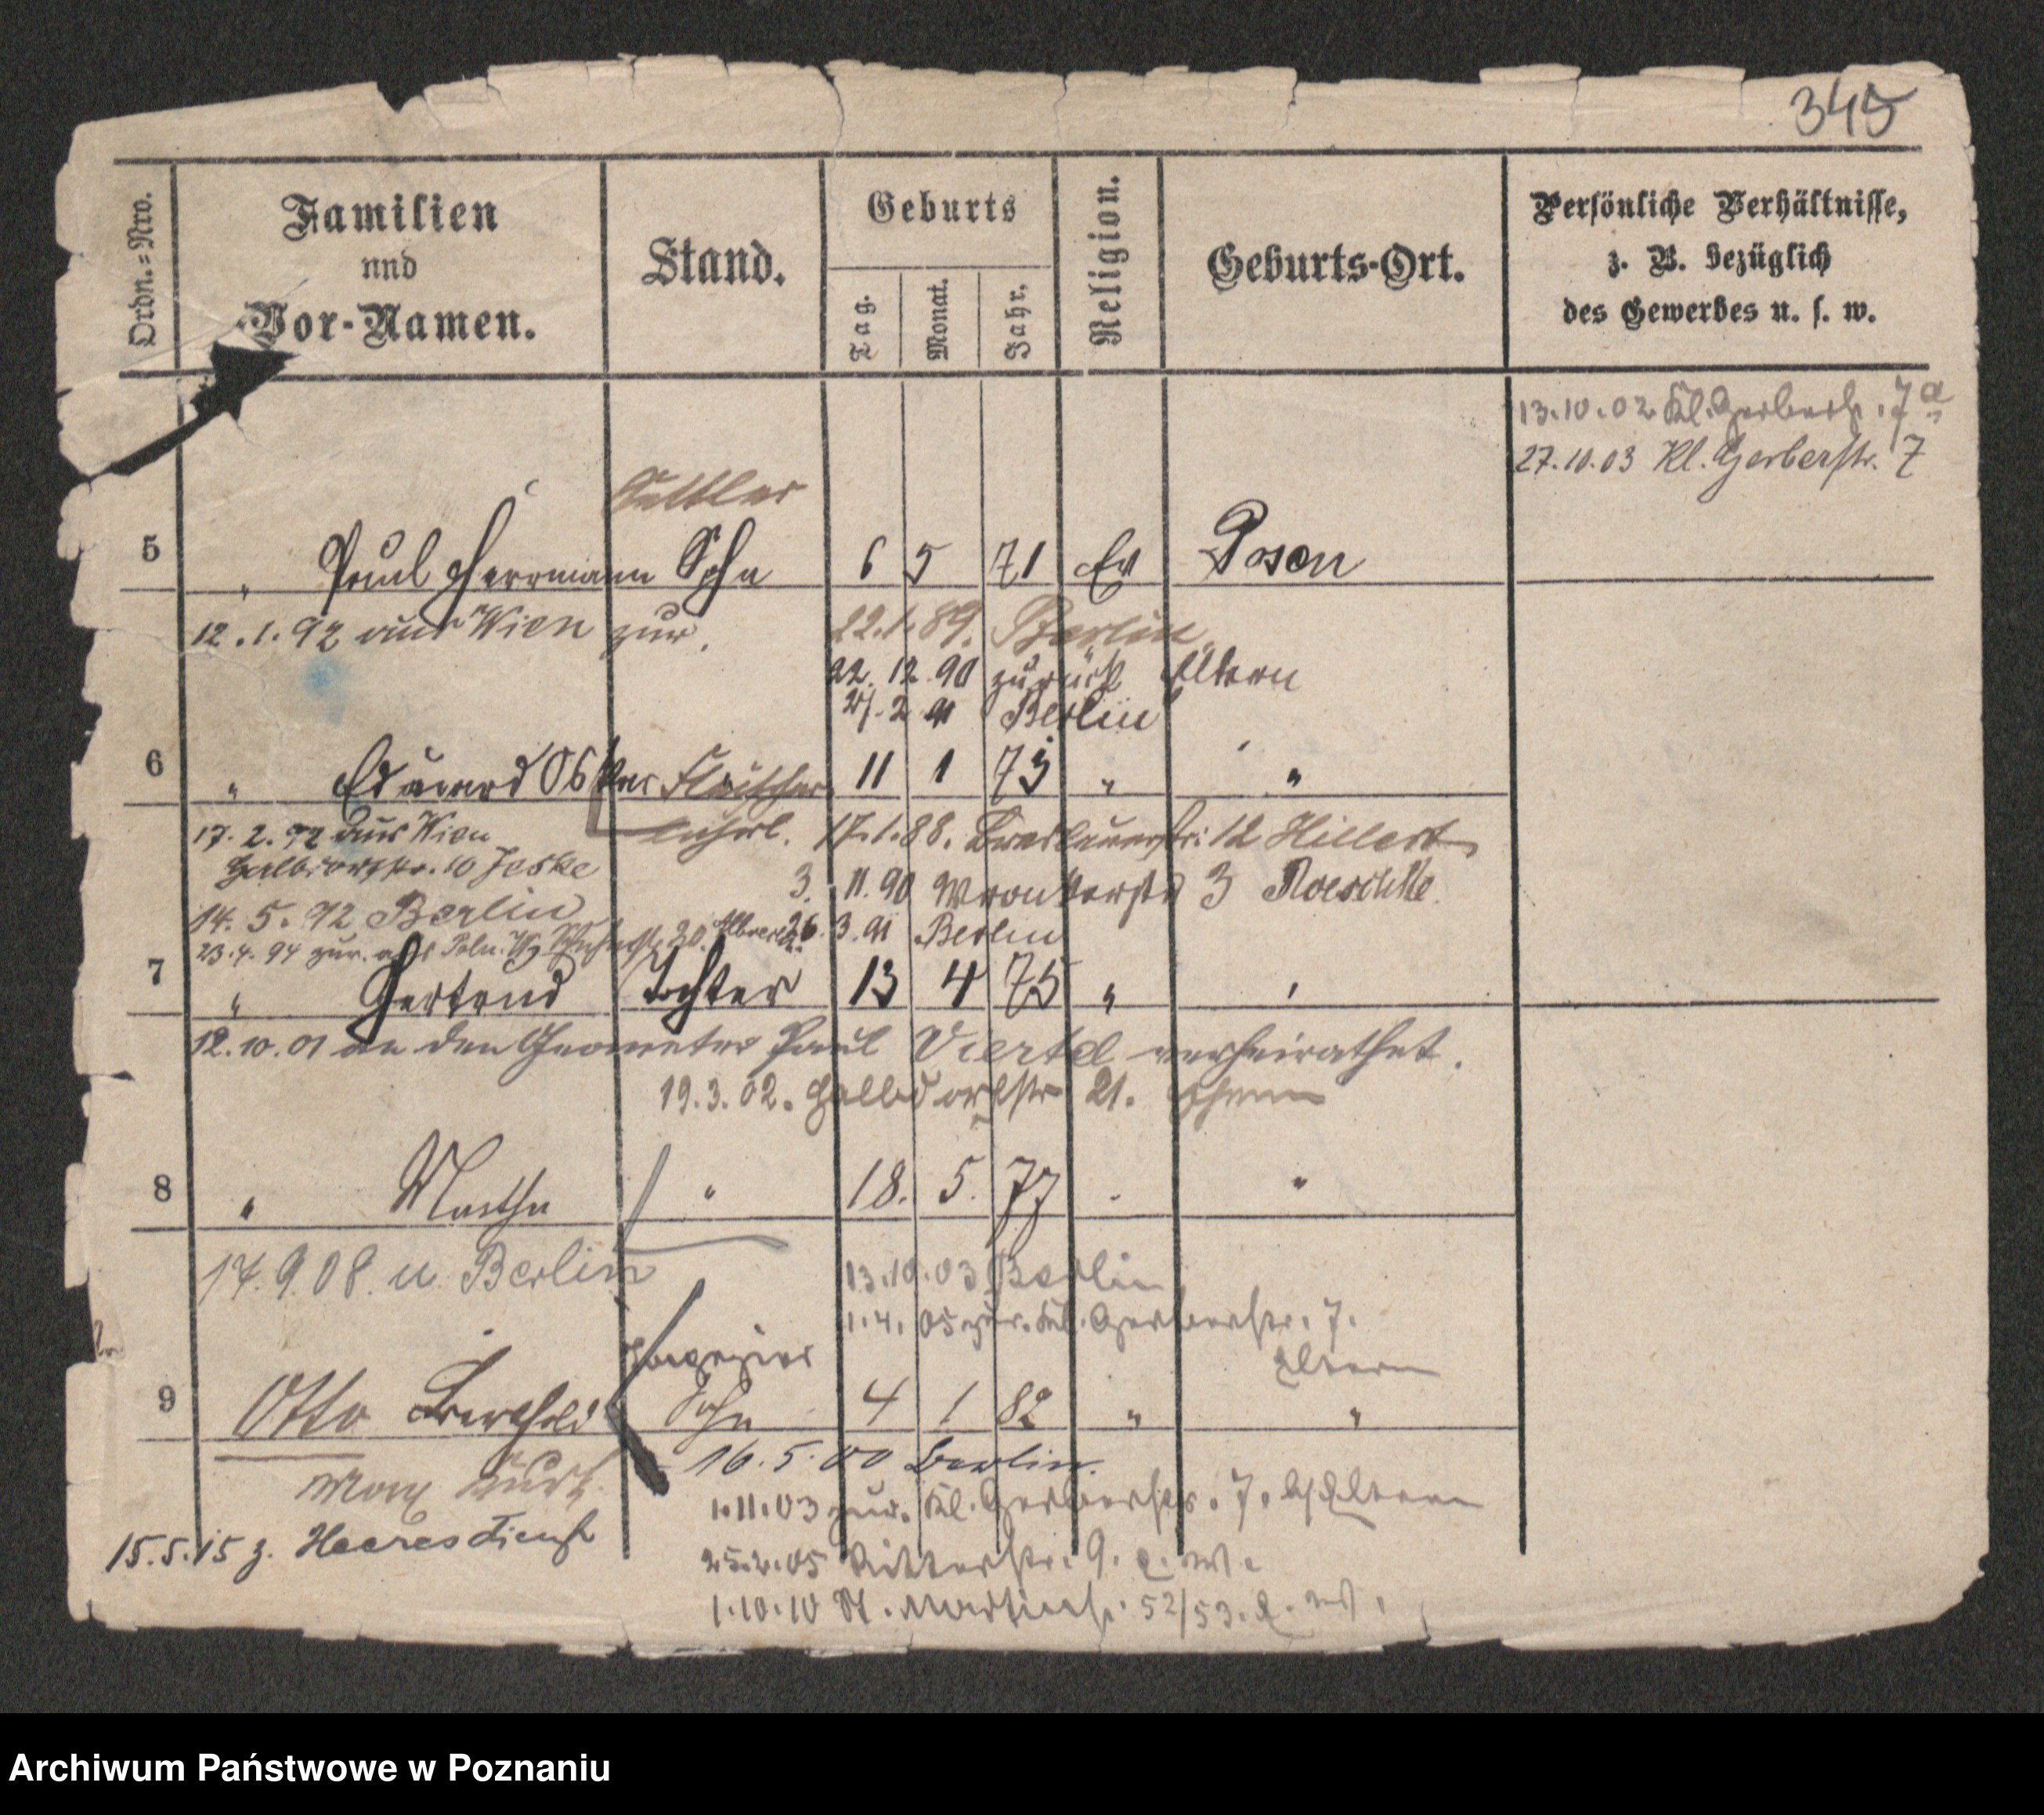 345
Ordn.=Nro.
Familien
und
Vor-Namen.
Stand.
Geburts
Tag.
Monat.
Jahr.
Religion.
Geburts-Ort.
Persönliche Verhältnisse,
z. B. bezüglich
des Gewerbes u. s. w.
13.10.02 Kl. Gerberstr. 7a
27.10.03 Kl. Gerberstr. 7
Sattler
5 " Paul Herrmann Sohn 6 5 71 Ev Posen
12.1.92 aus Wien zur. 22.1.89. Berlin
22.12.90 zurück Eltern
2. 91 Berlin
6 " Eduard Oskar Fleischer 11 1 73 " "
17.2.92 aus Wien
lehrl. 17.1.88. Breslauerstr: 12 Hillert
Halbdorfstr. 10 Jeske
3. 11. 90 Wronkerstr 3 Roeschke
14.5.92 Berlin
23.4.94 zur. aus Poln. 20. 26.3.91 Berlin
7 " Gertrud Tochter 13 4 75 " "
12.10.01 an den Geometer Paul Viertel verheirathet.
19.3.02. Halbdorfstr 21.
8 " Martha " 18. 5. 77 " "
14.9.08. u Berlin
13.10.03 Berlin
1.4.05 zur. Kl. Gerberstr. 7.
Eltern
9 Otto Berthold Sohn 4 1 82 " "
Max Kurt
16.5.00 Berlin.
1.11.03 zur. Kl. Gerberstr. 7. Eltern
15.5.15 z. Heeresdienst
25.2.05 Ritterstr. 9.
1.10.10 St. Martinstr. 52/53.
Archiwum Państwowe w Poznaniu